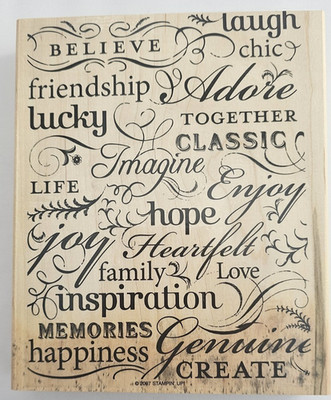 laugh
BELIEVE
chic
friendship Adore
lucky TOGETHER
CLASSIC
Imagine
LIFE Enjoy
hope
joy Heartfelt
family Love
inspiration
MEMORIES Genuine
happiness CREATE
© 2007 STAMPIN' UP!